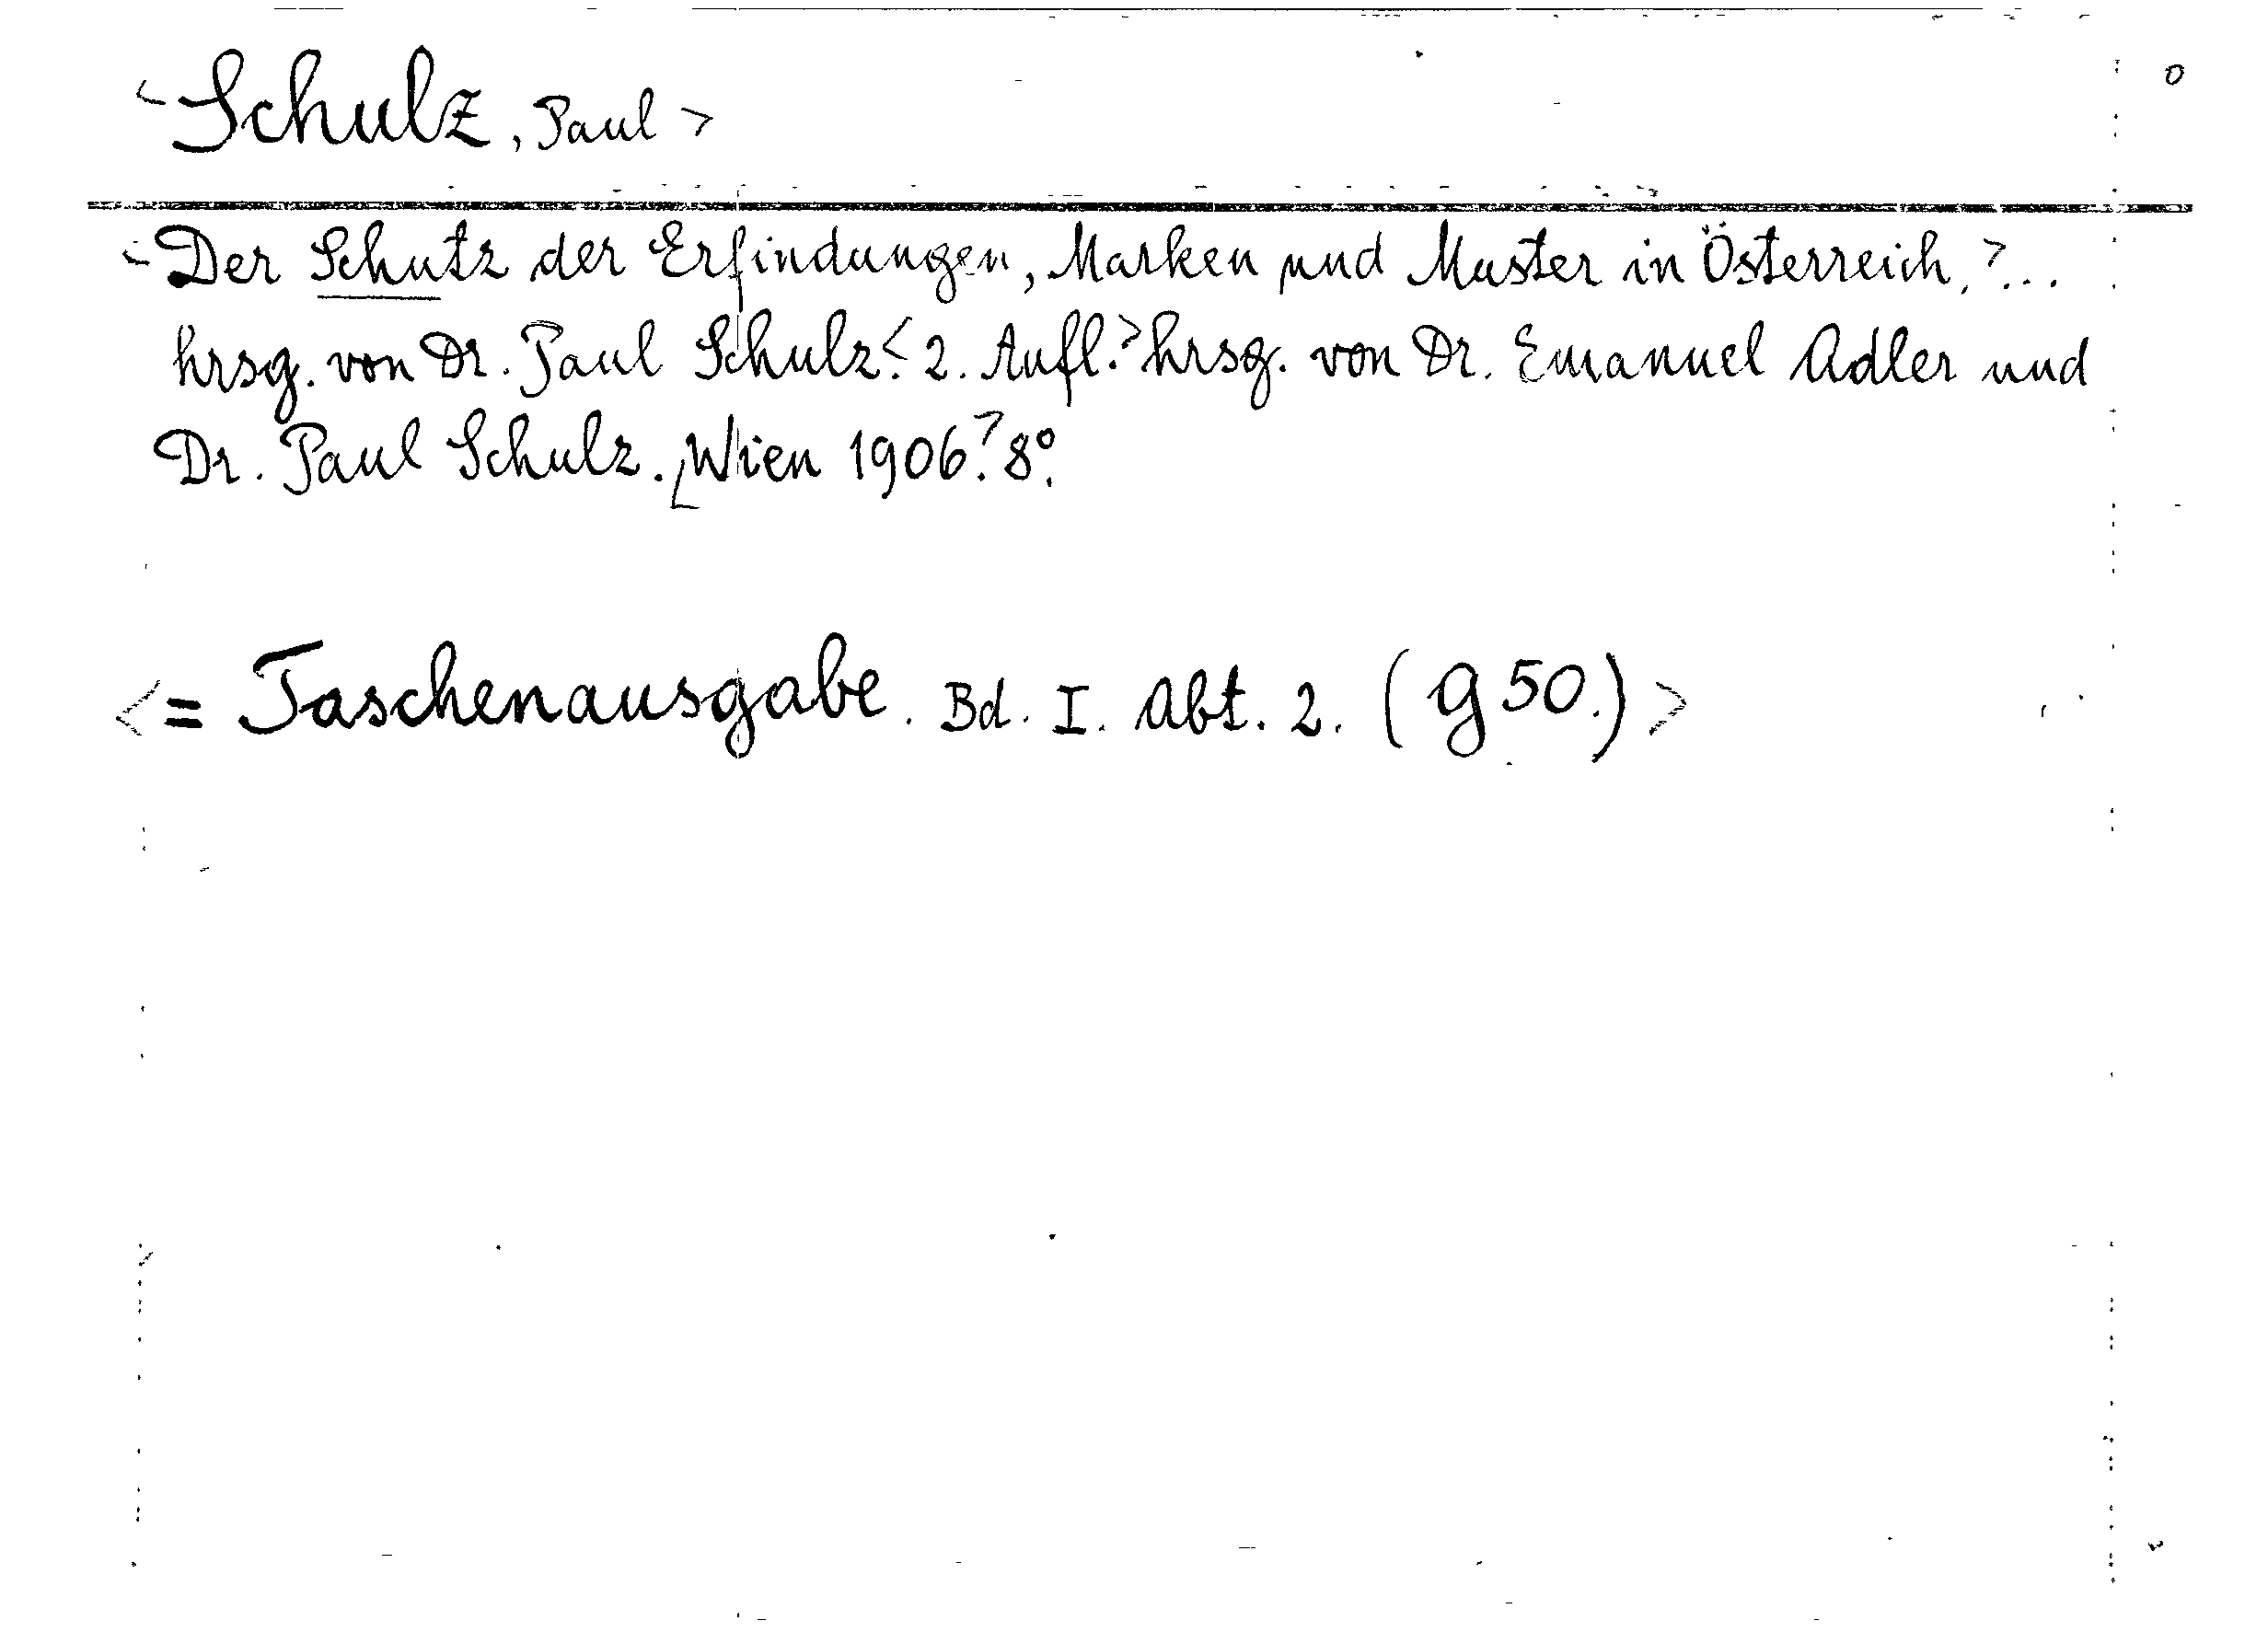 <Schulz, Paul>
<Der Schutz der Erfindungen, Marken und Muster in Österreich,>...
hrsg. von Dr. Paul Schulz.<2. Aufl.>hrsg. von Dr. Emanuel Adler und
Dr. Paul Schulz.<Wien 1906.>8°.
<= Taschenausgabe. Bd. I. Abt. 2. (g 50.)>